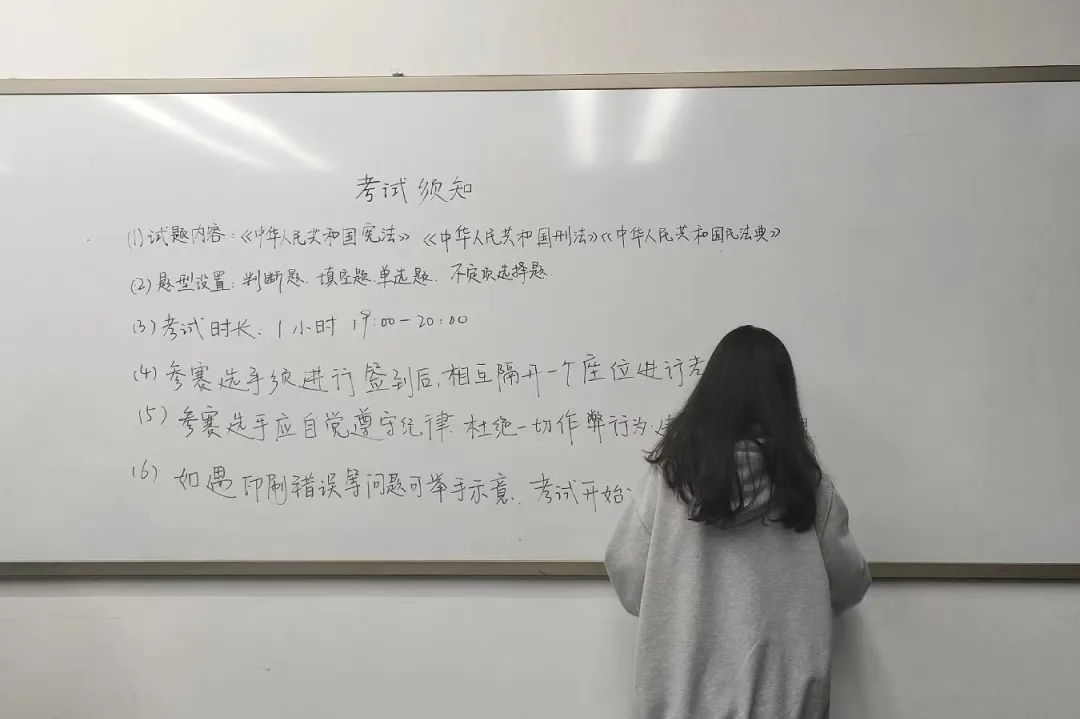 考试须知
(1)试题内容：《中华人民共和国宪法》《中华人民共和国刑法》《中华人民共和国民法典》
(2)题型设置：判断题、填空题、单选题、不定项选择题
(3)考试时长：1小时 19:00-20:00
(4)参赛选手须进行签到后，相互隔开一个座位进行考
(5)参赛选手应自觉遵守纪律、杜绝一切作弊行为
(6)如遇印刷错误等问题可举手示意。考试开始